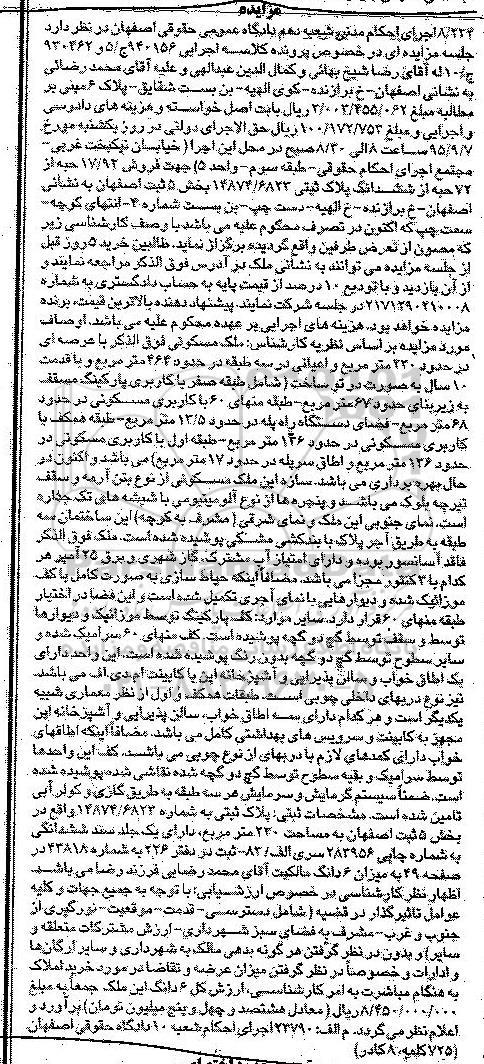 مزایده
۸/۲۳۴ اجرای احکام مدنی شعبه دهم دادگاه عمومی حقوقی اصفهان در نظر دارد
جلسه مزایده ای در خصوص پرونده کلاسه اجرایی ۹۴۰۱۵۶ج/۵ و ۹۳۰۴۶۲
ج/۱۰ له آقای رضا شیخ بهائی و کمال الدین عبدالهی و علیه آقای محمد رضائی
به نشانی اصفهان-خ برازنده-کوی الهیه-بن بست شقایق-پلاک ۶ مبنی بر
مطالبه مبلغ ۳/۰۰۳/۴۵۵/۰۶۲ ریال بابت اصل خواسته و هزینه های دادرسی
و اجرایی و مبلغ ۱۰۰/۱۷۲/۷۵۳ ریال حق الاجرای دولتی در روز یکشنبه مورخ
۹۵/۹/۷ ساعت ۸ الی ۸/۳۰ صبح در محل این اجرا (خیابان نیکبخت غربی-
مجتمع اجرای احکام حقوقی-طبقه سوم-واحد ۵) جهت فروش ۱۷/۹۲ حبه از
۷۲ حبه از ششدانگ پلاک ثبتی ۱۴۸۷۴/۶۸۲۳ بخش ۵ ثبت اصفهان به نشانی
اصفهان-خ برازنده-خ الهیه-دست چپ-بن بست شماره ۴-انتهای کوچه-
سمت چپ که اکنون در تصرف محکوم علیه می باشد با وصف کارشناسی زیر
که مصون از تعرض طرفین واقع گردیده برگزار نماید. طالبین خرید ۵ روز قبل
از جلسه مزایده می توانند به نشانی ملک در آدرس فوق الذکر مراجعه نمایند و
از آن بازدید و با تودیع ۱۰ درصد از قیمت پایه به حساب دادگستری به شماره
۲۱۷۱۲۹۰۲۱۰۰۰۸ در جلسه شرکت نمایند. پیشنهاد دهنده بالاترین قیمت، برنده
مزایده خواهد بود. هزینه های اجرایی بر عهده محکوم علیه می باشد. اوصاف
مورد مزایده بر اساس نظریه کارشناس: ملک مسکونی فوق الذکر با عرصه ای
در حدود ۲۳۰ متر مربع و اعیانی در سه طبقه در حدود ۴۶۴ متر مربع و با قدمت
۱۰ سال به صورت در تو ساخت (شامل طبقه صفر با کاربری پارکینگ مسقف
به زیربنای حدود ۶۷ متر مربع-طبقه منهای ۶۰ با کاربری مسکونی در حدود
۶۸ متر مربع-فضای دستگاه راه پله در حدود ۱۳/۵ متر مربع-طبقه همکف با
کاربری مسکونی در حدود ۱۳۶ متر مربع-طبقه اول با کاربری مسکونی در
حدود ۱۳۶ متر مربع و اطاق سرپله در حدود ۱۷ متر مربع) می باشد و اکنون در
حال بهره برداری می باشد. سازه این ملک مسکونی از نوع بتن آرمه و سقف
تیرچه بلوک می باشد و پنجره ها از نوع آلومینیومی با شیشه های تک جداره
است. نمای جنوبی این ملک و نمای شرقی (مشرف به کوچه) این ساختمان سه
طبقه به طریق آجر پلاک با بندکشی مشکی پوشیده شده است. ملک فوق الذکر
فاقد آسانسور بوده و دارای امتیاز آب مشترک، گاز شهری و برق ۲۵ آمپر هر
کدام با ۳ کنتور مجزا می باشد. مضافاً اینکه حیاط سازی به صورت کامل با کف
موزائیک شده و دیوارهایی با نمای آجری تکمیل شده است و این فضا در اختیار
طبقه منهای ۶۰ قرار دارد. سایر موارد: کف پارکینگ توسط موزائیک و دیوارها
توسط و سقف توسط گچ دوگچه پوشیده است. کف منهای ۶۰ سرامیک شده و
سایر سطوح توسط گچ دوگچه بدون رنگ پوشیده شده است. این واحد دارای
یک اطاق خواب و سالن پذیرایی و آشپزخانه اپن با کابینت ام دی اف می باشد.
نیز نوع دربهای داخلی چوبی است. طبقات همکف و اول از نظر معماری شبیه
یکدیگر است و هر کدام دارای سه اطاق خواب، سالن پذیرایی و آشپزخانه اپن
مجهز به کابینت و سرویس های بهداشتی کامل می باشد. مضافاً اینکه اطاقهای
خواب دارای کمدهای لازم با دربهای از نوع چوبی می باشند. کف این واحدها
توسط سرامیک و بقیه سطوح توسط گچ دوگچه شده نقاشی شده پوشیده شده
است. ضمناً سیستم گرمایش و سرمایش هر سه طبقه به طریق گازی و کولر آبی
تامین شده است. مشخصات ثبتی: پلاک ثبتی به شماره ۱۴۸۷۴/۶۸۲۳ واقع در
بخش ۵ ثبت اصفهان به مساحت ۲۳۰ متر مربع، دارای یک جلد سند ششدانگی
به شماره چاپی ۲۸۳۹۵۶ سری الف/۸۳-ثبت در دفتر ۲۲۶ به شماره ۴۳۸۱۸ در
صفحه ۴۹ به میزان ۶ دانگ مالکیت آقای محمد رضایی فرزند رضا می باشد.
اظهار نظر کارشناسی در خصوص ارزشیابی: با توجه به جمیع جهات و کلیه
عوامل تاثیرگذار در قضیه (شامل دسترسی-قدمت-موقعیت-نورگیری از
جنوب و غرب-مشرف به فضای سبز شهرداری-ارزش مشترکات متعلقه و
سایر) و بدون در نظر گرفتن هر گونه بدهی مالک به شهرداری و سایر ارگانها
و ادارات و خصوصاً در نظر گرفتن میزان عرضه و تقاضا در مورد خرید املاک
به هنگام مباشرت به امر کارشناسی، ارزش کل ۶ دانگ این ملک جمعاً به مبلغ
۸/۴۵۰/۰۰۰/۰۰۰ ریال (معادل هشتصد و چهل و پنج میلیون تومان) برآورد و
اعلام نظر می گردد. م الف: ۲۳۷۹۰ اجرای احکام شعبه ۱۰ دادگاه حقوقی اصفهان
(۷۲۵ کلمه، ۸ کادر)